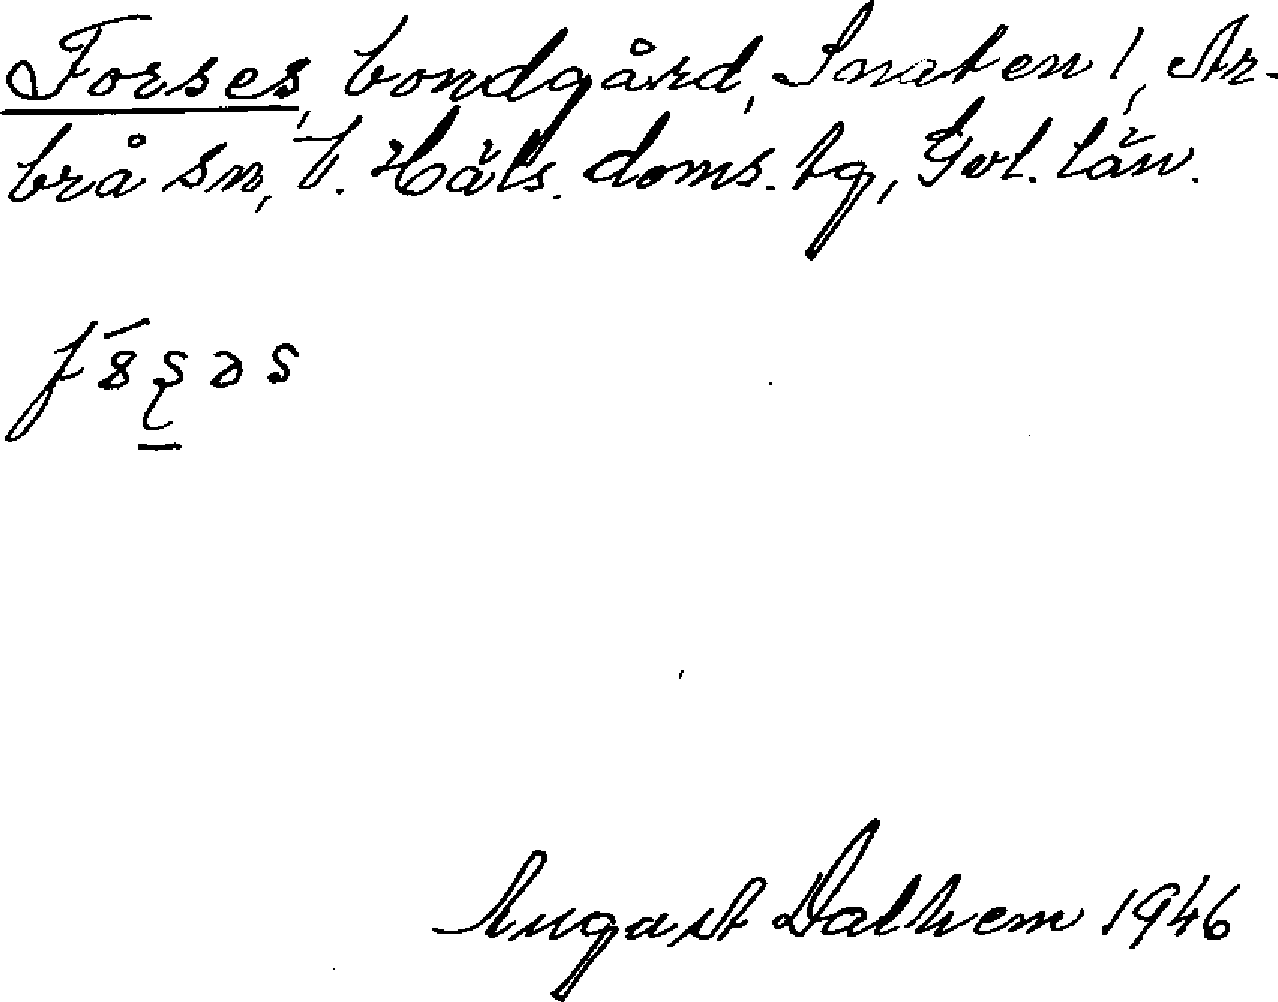 Forses, bondgård, Snaten 1, Ar-
brå sn, V. Häls. doms. tg, Gvl. län.
August Dalhem 1946